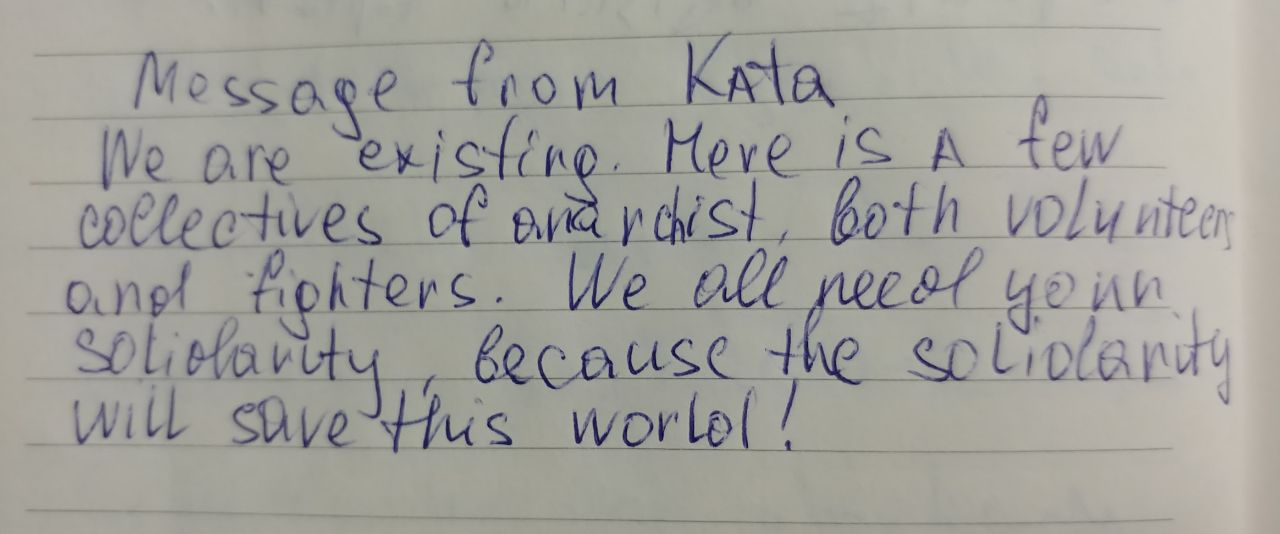 Message from KAta
We are existing. Here is A few
collectives of anarchist, both volunteers
and fighters. We all need your
solidarity, because the solidarity
will save this world!